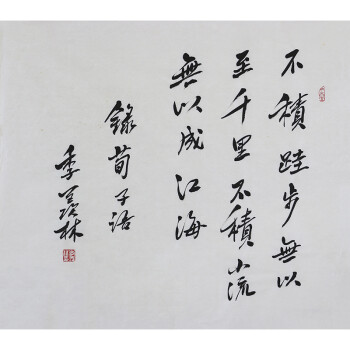 不積跬步無以
至千里不積小流
無以成江海
錄荀子語
季羡林